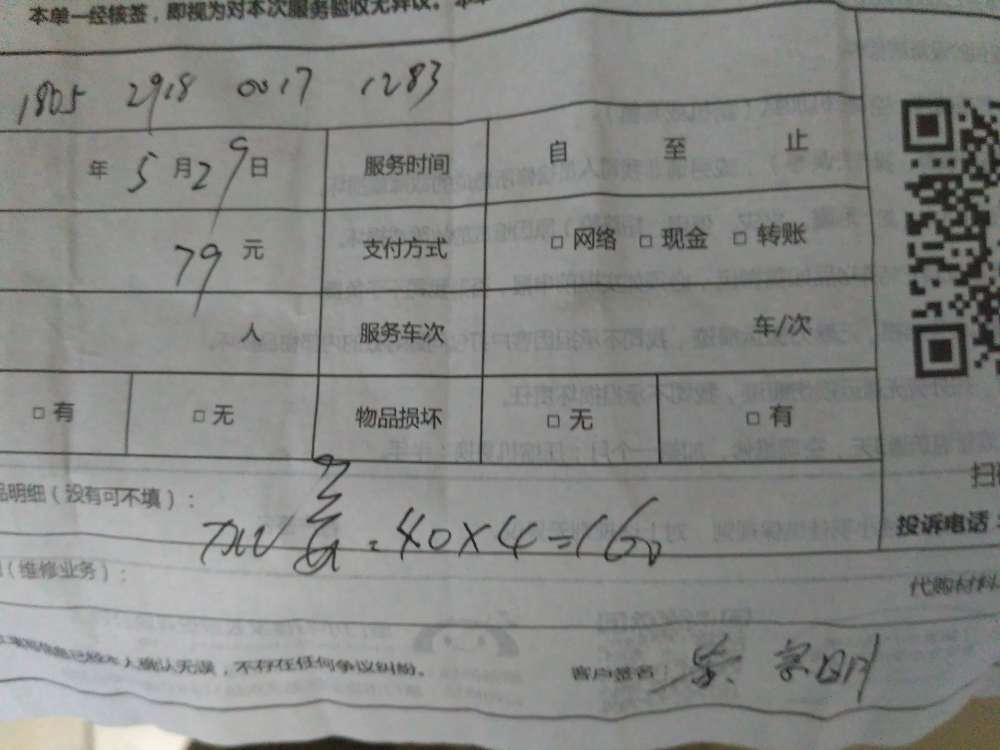 本单一经核签，即视为对本次服务验收无异议。本单
1805 2918 0017 1283
年 5 月 29 日 服务时间 自 至 止
79 元 支付方式 □ 网络 □ 现金 □ 转账
人 服务车次 车/次
□ 有 □ 无 物品损坏 □ 无 □ 有
品明细（没有可不填）：
扫
加 : 40×4=160
投诉电话：
（维修业务）：
代购材料
信息已经本人确认无误，不存在任何争议纠纷。
客户签名：